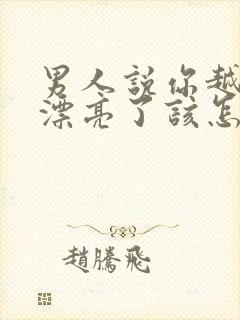 男人說你越
漂亮了該怎
趙騰飛